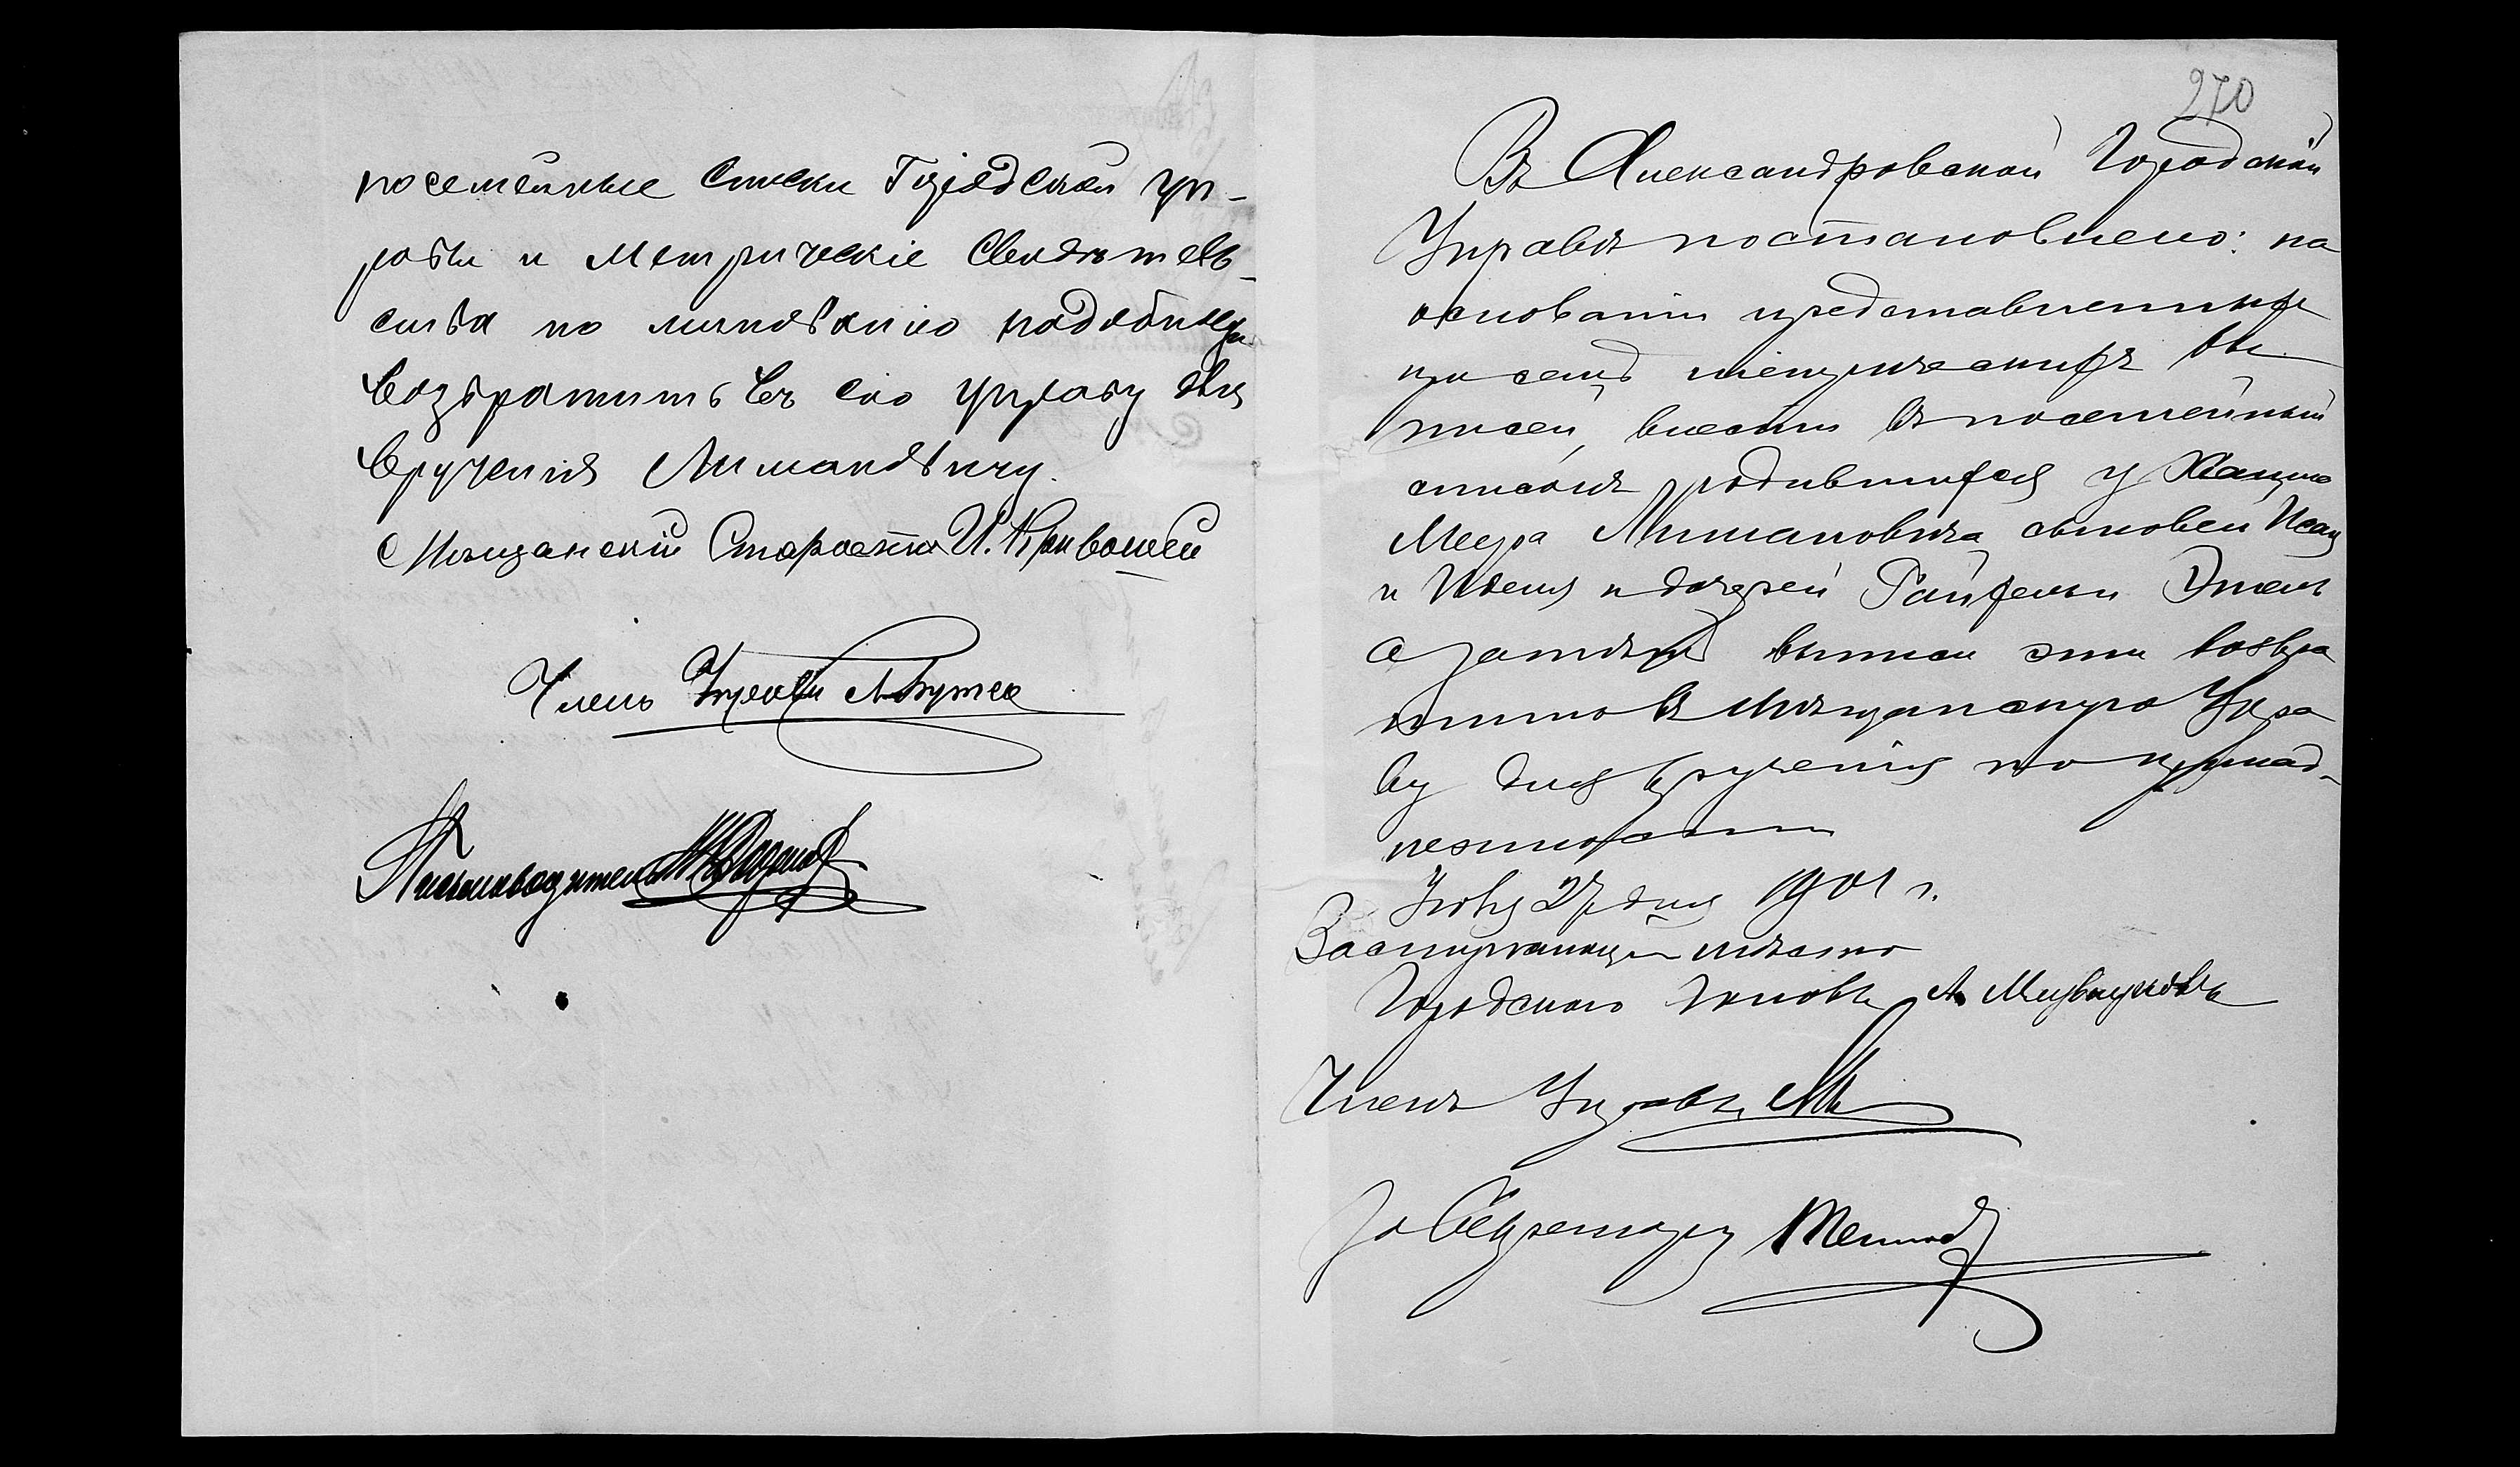 посемейные списки Городской уп-
равы и Метрическіе Свидѣтель-
ства по минованіи надобности
Возвратить въ сію управу для
Врученія Лимановичу.
Мѣщанскій Староста И. Кривошей
Членъ Управы
Письмоводитель
270
Въ Александровской Городской
Управѣ постановлено: на
основаніи представленныхъ
при семъ метрическихъ вы
писей, внести въ посемейный
списокъ родившихся у Хацкеля
Меера Лимановича сыновей Исаака
и и дочерей Этель
а затѣмъ выписи эти возвра
тить въ Мѣщанскую Упра
ву для врученія по принад-
лежности
27 дня 1901 г.
Заступающій мѣсто
Городского Головы А.
Членъ Управы
За Секретаря